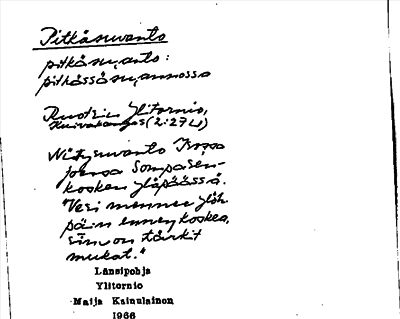 Pitkäsuvanto
pitkäsu̯anto:
pitkässäsu̯annossa
Ruotsin Ylitornio,
Kuivakangas (2:27 u)
Nitysuvanto Isossa
joessa Sompasen-
kosken yläpäässä.
"Vesi mennee ylös
päin ennen koskea,
siin on tärkit
mukat."
Länsipohja
Ylitornio
Maija Kainulainen
1966